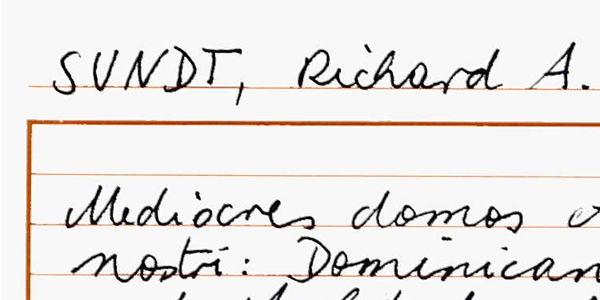 SVNDT, Richard A.
Mediòcres domos
nostri: Dominican